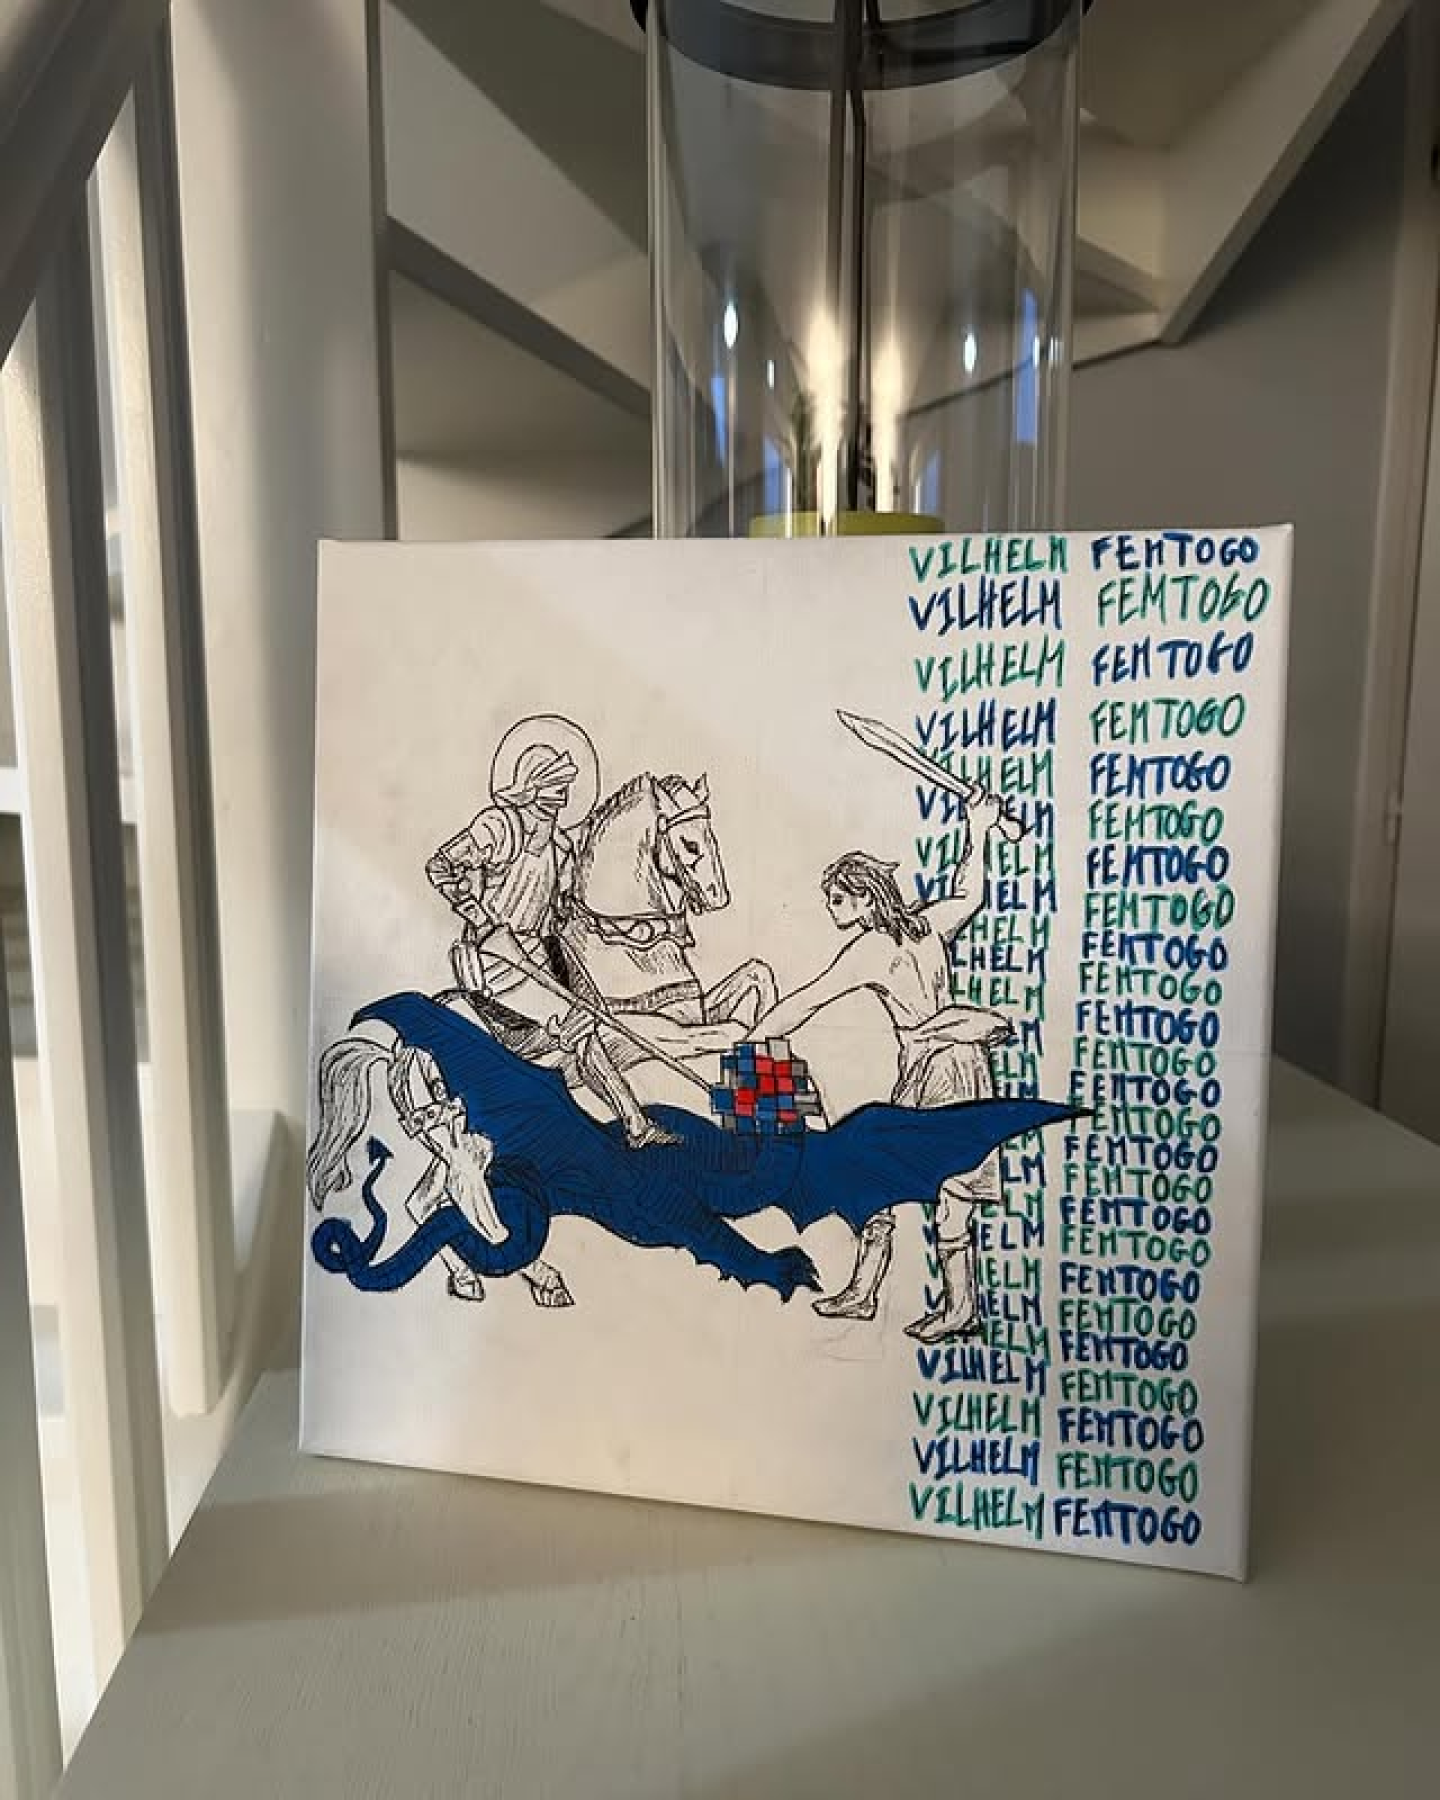 VILHELM FEMTOGO
VILHELM FEMTOGO
VILHELM FEMTOGO
VILHELM FEMTOGO
VILHELM FEMTOGO
VI ELM FEMTOGO
VI ELM FEMTOGO
VI HELM FEMTOGO
HELM FEMTOGO
LHELM FEMTOGO
LHELM FEMTOGO
M FEMTOGO
ELM FEMTOGO
LM FEMTOGO
M FEMTOGO
LM FEMTOGO
ELM FEMTOGO
ELM FEMTOGO
V IELM FEMTOGO
V HELM FEMTOGO
HELM FEMTOGO
VILHELM FEMTOGO
VILHELM FEMTOGO
VILHELM FEMTOGO
VILHELM FEMTOGO